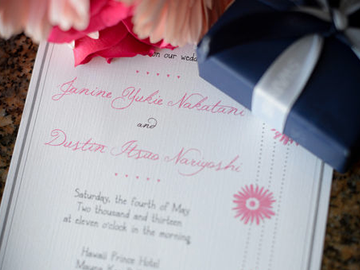 in our wedd
Janine Yukie Nakatani
and
Dustin Itsao Nariyoshi
Saturday, the fourth of May
Two thousand and thirteen
at eleven o'clock in the morning
Hawaii Prince Hotel